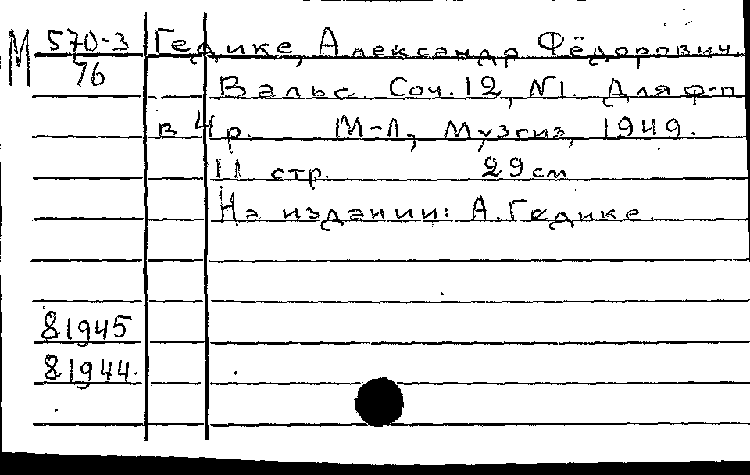 М 570-3 Гедике, Александр Фёдорович
76
Вальс. Соч. 12, N1. Для ф-п
в 4 р. М-Л, Музгиз, 1949.
11 стр. 29 см
На издании: А. Гедике
81945
81944